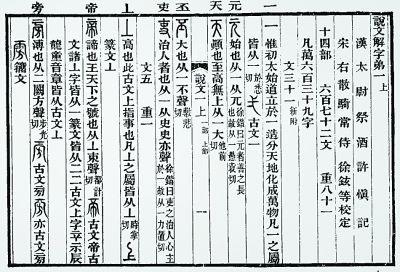 說文解字弟一 上
漢太尉祭酒許愼記
宋右散騎常侍徐鉉等校定
十四部 六百七十二文 重八十一
凡萬六百三十九字
文三十一 新附
一 一 惟初太始道立於一造分天地化成萬物凡一之屬
皆从一 於悉切 弌 古文一
元 元 始也从一从兀 徐鍇曰元者善之長也故从一 愚袁切
天 天 顚也至高無上从一大 他前切
說文一上 一部 上部 一
丕 丕 大也从一不聲 敷悲切
吏 吏 治人者也从一从史史亦聲 徐鍇曰吏之治人心主於一故从一 力置切
文五 重一
丄 丄 高也此古文上指事也凡丄之屬皆从丄 時掌切 上
篆文丄
帝 帝 諦也王天下之號也从丄朿聲 都計切 帝 古文帝古
文諸丄字皆从一篆文皆从二二古文上字䇂示辰
龍童音章皆从古文上
旁 旁 溥也从二闕方聲 步光切 旁 古文㫄 旁 亦古文㫄
雱 籒文